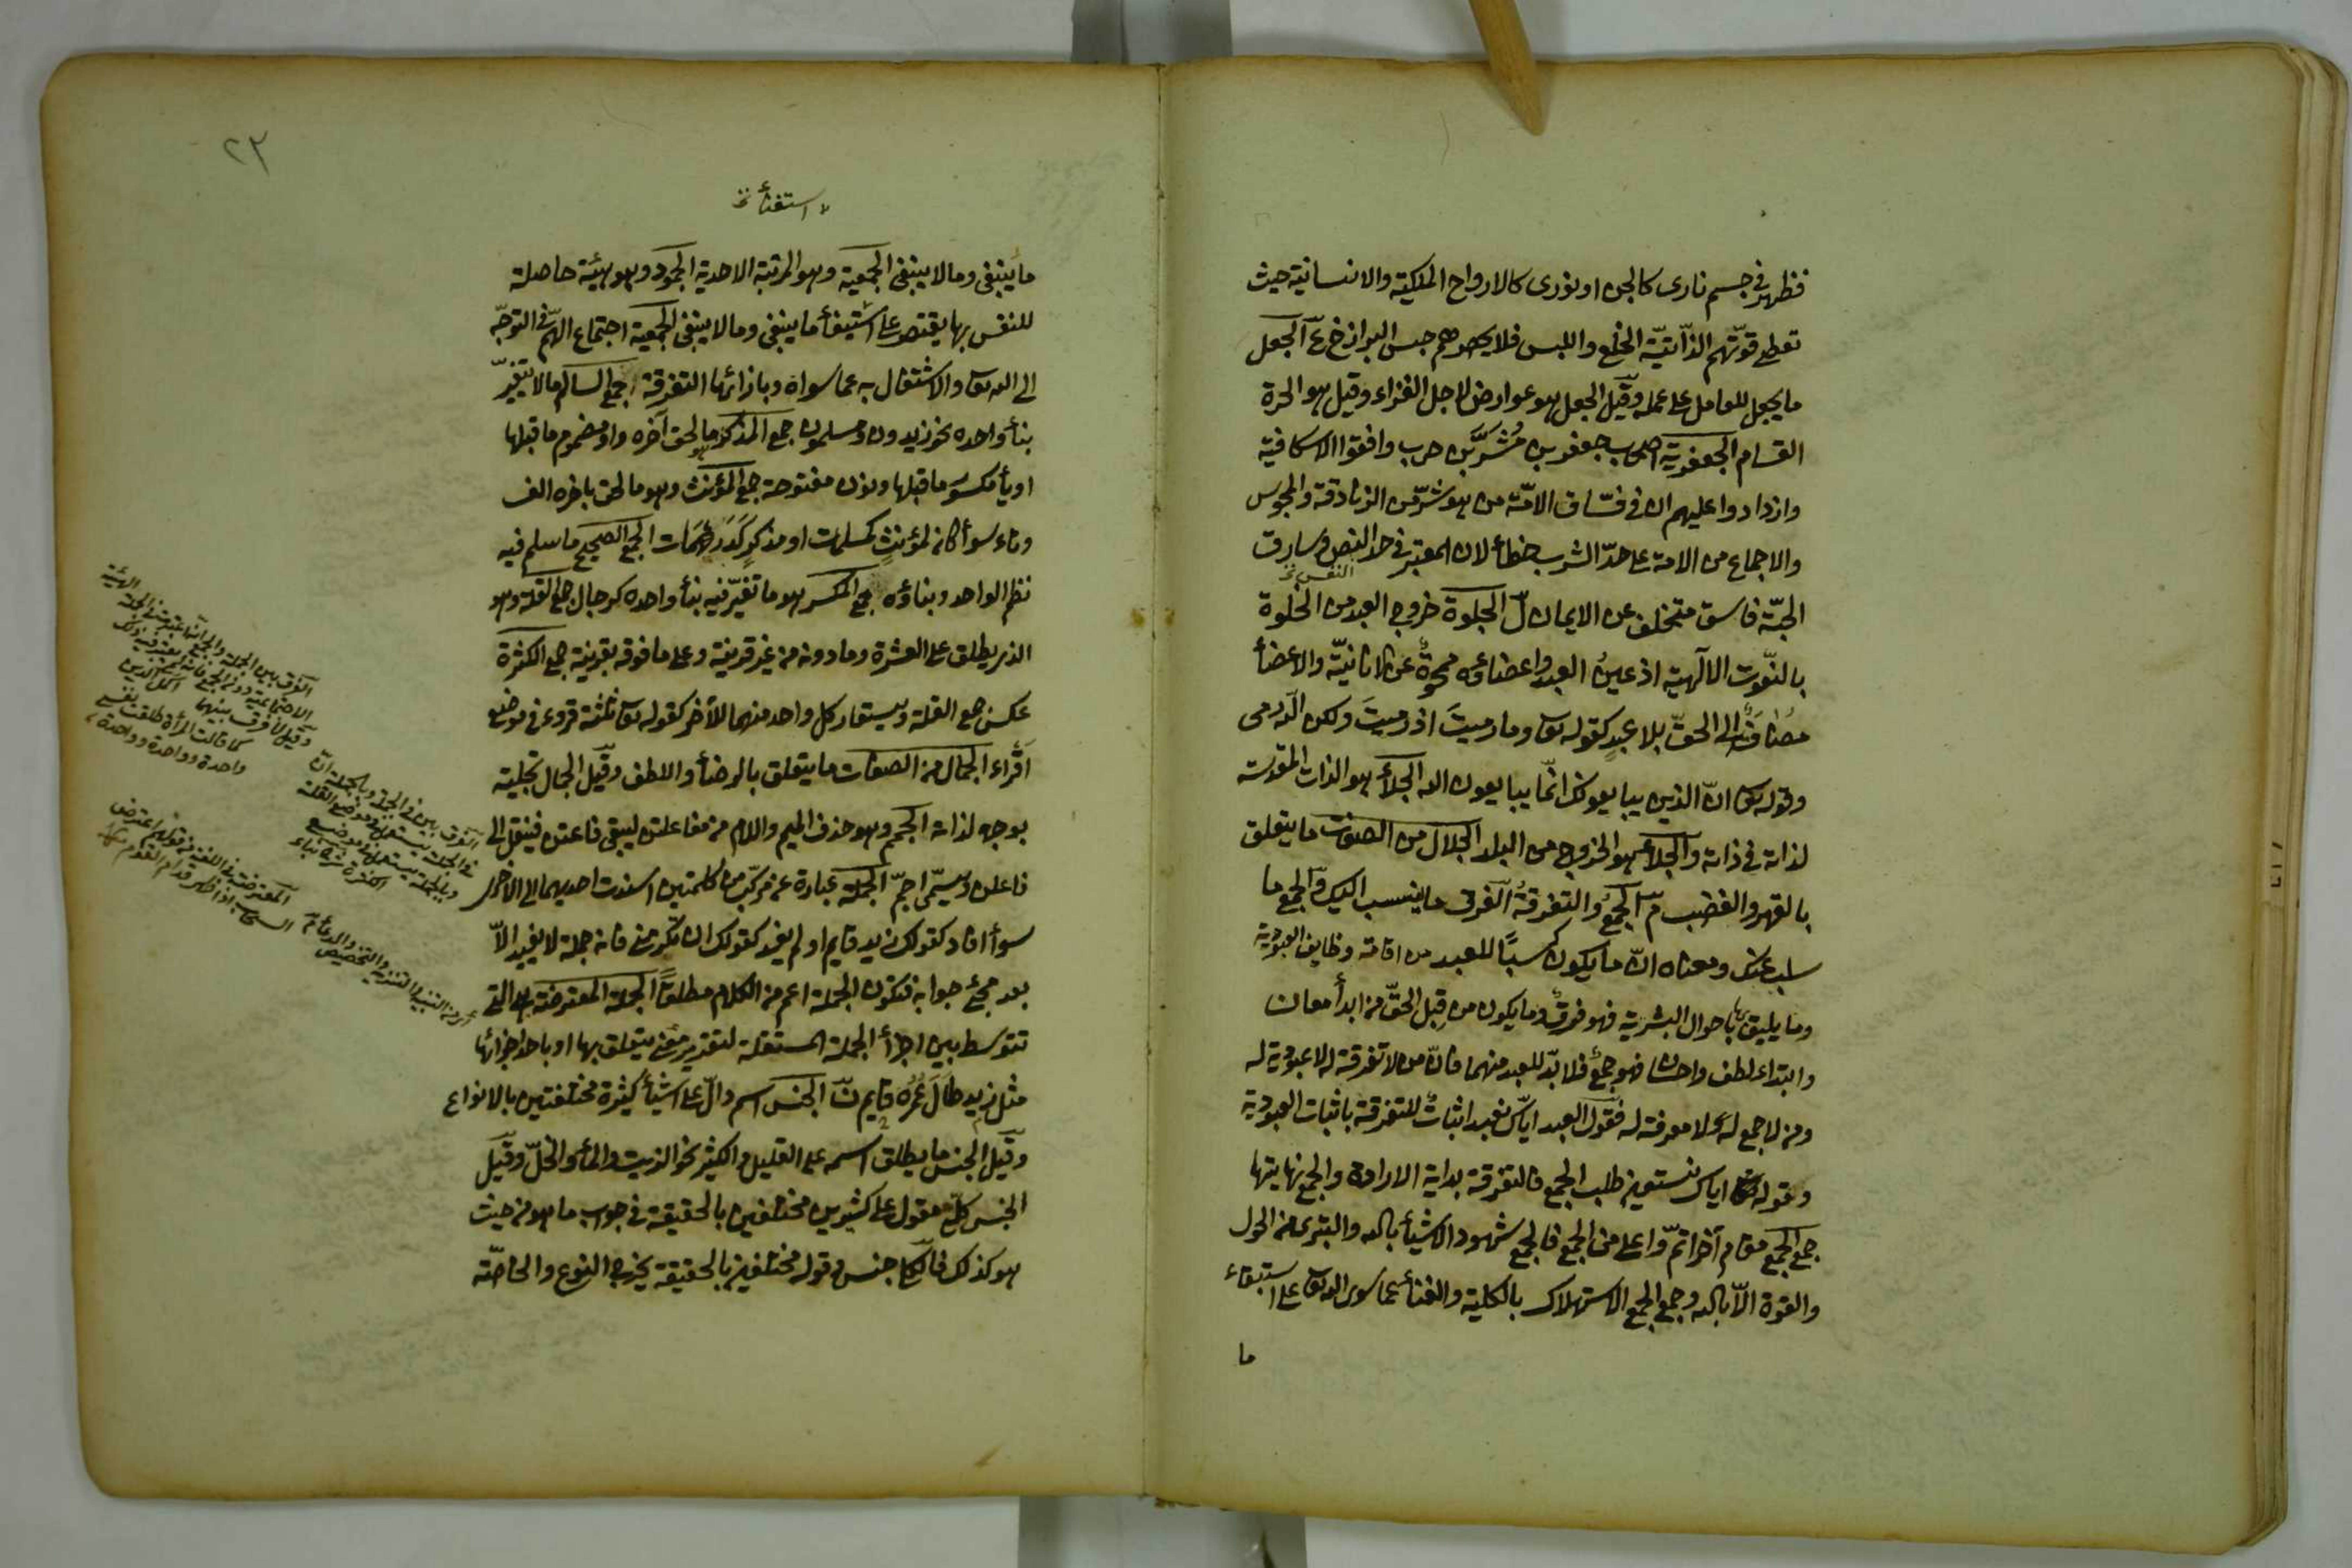 فظهر في جسم نارى كالجن او نورى كالارواح الملكية والانسانية حيث
تعطى قوتهم الذاتية الخلع واللبس فلا يحصرهم حبس البرازخ ع الجعل
ما يجعل للعامل على عمله وقيل الجعل هو عوارض لاجل الغزاء وقيل هو الحرة
القسام الجعفرية اصحاب جعفر بن مُشَرّ بن حرب وافقوا الاسكافية
وازدادوا عليهم ان في فسّاق الامّة من هو شرّ من الزنادقة والمجوس
والاجماع من الامة على حدّ الشرب خطأ لان المعتبر في حد النص وسارق
النص
الحبّة فاسق متخلف عن الايمان ل الجلوة خروج العبد من الخلوة
بالنّعوت الالهية اذ عينُ العبد واعضاءه محوةٌ عن الانانيّة والاعضأ
مضافةٌ الى الحقّ بلا عبدٍ كقوله تع وما رميتَ اذ رميتَ ولكن الله رمى
وقوله تع انّ الذين يبايعونك انّما يبايعون الله الجلأ هو الذات المقدسة
لذاته في ذاته والجلاء هو الخروج من البلد الجلال من الصفات ما يتعلق
بالقهر والغضب م الجمع والتفرقة الفرق ما ينسب اليك والجمع ما
سلب عنك ومعناه انّ ما يكون كسبًا للعبد من اقامة وظايف العبودية
وما يليق بها باحوال البشرية فهو فرقٌ وما يكون من قِبل الحقّ من ابدأ معان
وابتداء لطف واحسان فهو جمعٌ فلا بدّ للعبد منهما فانّ من لا تفرقة له لا عبودية له
ومن لا جمع له لا معرفة له فقول العبد ايّاك نعبد اثباتٌ للتفرقة باثبات العبودية
وقوله اياك نستعين طلب الجمع فالتفرقة بداية الارادة والجمع نهايتها
جمع الجمع مقام آخر اتمّ واعلى من الجمع فالجمع شهود الاشيأ بالله والتبرى من الحول
والقوة الّا بالله وجمع الجمع الاستهلاك بالكلية والفنأ عما سوى الله تع على استيفاء
ما
٢٣
استفنأ
ما ينبغى وما لا ينبغى الجمعية وهو المرتبة الاحدية الجمود وهو هيئة حاصلة
للنفس بها يقتصر على استيفأ ما ينبغى وما لا ينبغى الجمعية اجتماع الهمّ في التوجّه
الى الله تع والاشتغال به عما سواه وبازائها التفرقة جمع السالم ما لا يتغيّر
بنأ واحده نحو زيدون ومسلمون جمع المذكر ما لحق آخره واو مضموم ما قبلها
او يأ مكسور ما قبلها ونون مفتوحة جمع المؤنث وهو ما لحق باخره الف
وتاء سوأ كان لمؤنث كمسلمات او مذكر كدريهمات الجمع الصحيح ما سلم فيه
نظم الواحد وبناؤه جمع المكسر هو ما تغيّر فيه بنأ واحده كرجال جمع القلة وهو
الذى يطلق على العشرة وما دونه من غير قرينة وعلى ما فوقه بقرينة جمع الكثرة
عكس جمع القلة ويستعار كل واحد منهما للآخر كقوله تع ثلثة قروء فى موضع
اَقْراء الجمال من الصفات ما يتعلق بالرضأ واللطف وقيل الجمال تجلية
بوجه لذاته الجمم وهو حذف الميم واللام من مفاعلتن ليبقى فاعتن فينقل الى
فاعلن ويسمّى اجمّ الجملة عبارة عن مركّب من كلمتين اسندت احديهما الى الاخرى
سوأ افاد كقولك زيد قايم او لم يفد كقولك ان يكرمنى فانه جملة لا يفيد الّا
بعد مجئ جوابه فتكون الجملة اعم من الكلام مطلقاً الجملة المعترضة هى التى
تتوسط بين اجزأ الجملة المستقلة لتقرير معنى يتعلق بها او باحد اجزائها
مثل زيد طَالَ عُمُره قايم ن الجنس اسم دالّ على اشيأ كثيرة مختلفتين بالانواع
وقيل الجنس ما يطلق اسمه على القليل والكثير نحو الزيت والمأ والخلّ وقيل
الجنس كلىّ مقول على كثيرين مختلفين بالحقيقة في جواب ما هو من حيث
هو كذلك فالكلى جنس وقوله مختلفين بالحقيقة يخرج النوع والخاصّة
الفرق بين الجملة والجمع
الاجتماعية دون الجمع فانه
وقيل لا فرق بينهما
كما قالت المرأة طلقت نفسى
واحدة وواحدة وواحدة